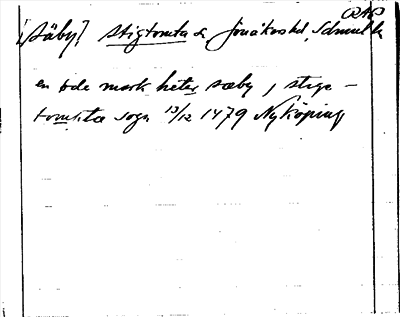 RAP
[Säby] Stigtomta sn, Jönåkers hd, Sdmnld
en öde mark heter sæby j stige-
tomta sogn 13/12 1479 Nyköping